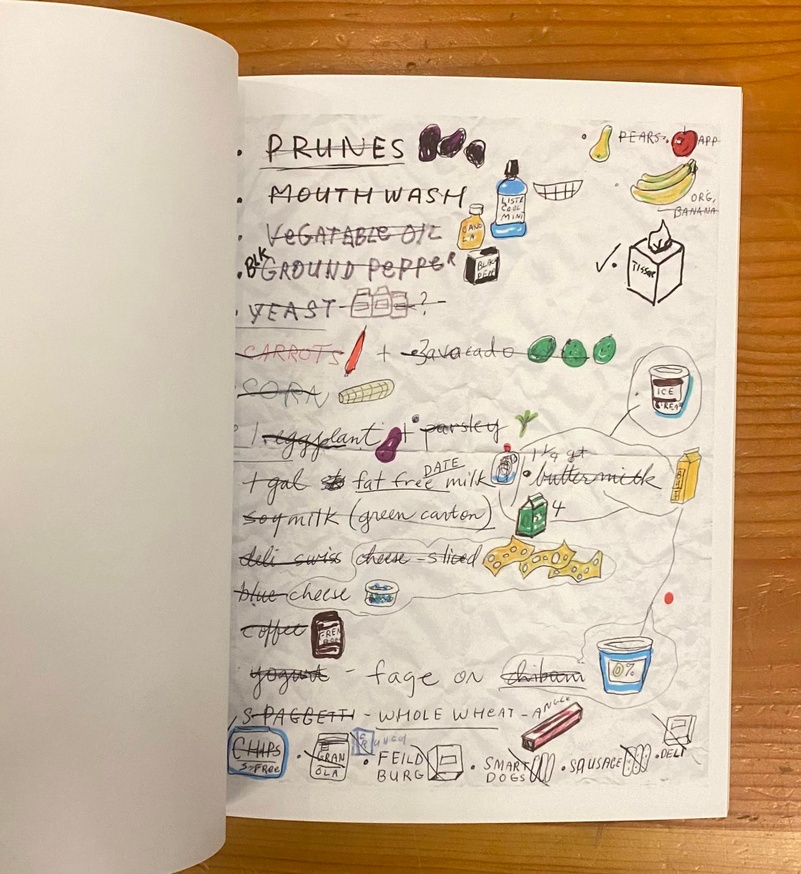 PRUNES
PEARS
APP
MOUTHWASH
LISTE COOL MINT
ORG. BANANA
VEGATABLE OIL
CANO LA
BLK GROUND PePPeR
BLK PEP
TISSUE
YEAST ?
CARROTS + 3 avacado
CORN
ICE CREAM
1 eggplant + parsley
+ gal fat free milk DATE
1 qt buttermilk
soy milk (green carton) 4
deli swiss cheese - sliced
blue cheese
coffee
yogurt - fage or chibani
0%
SPAGGETTI - WHOLE WHEAT - ANGLE
CHIPS S-FREE
GRAN OLA
FEILD BURG
SMART DOGS
SAUSAGE
DELI